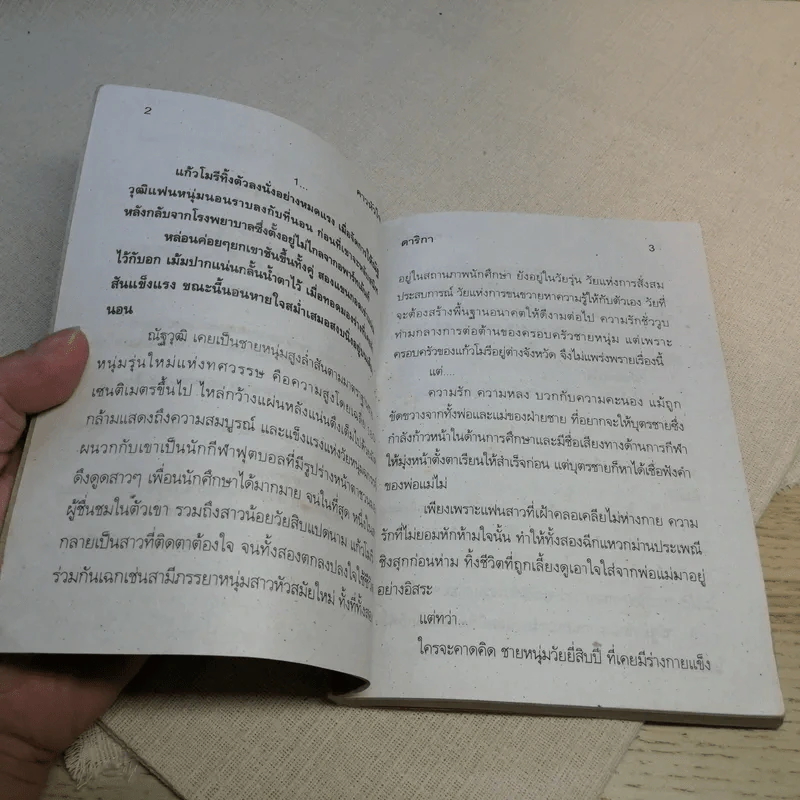 2
1...
แก้วโมรีทิ้งตัวลงนั่งอย่างหมดแรง เมื่อ
วุฒิแฟนหนุ่มนอนราบลงกับที่นอน ก่อนที่เขาจะ
หลังกลับจากโรงพยาบาลซึ่งตั้งอยู่ไม่ไกลจาก
หล่อนค่อยๆยกเขาชันขึ้นทั้งคู่ สองแขนกอด
ไว้กับอก เม้มปากแน่นกลั้นน้ำตาไว้ เมื่อทอดมอง
สันแข็งแรง ขณะนี้นอนหายใจสม่ำเสมอสงบนิ่งอยู่
นอน
ณัฐวุฒิ เคยเป็นชายหนุ่มสูงล่ำสันตาม
หนุ่มรุ่นใหม่แห่งทศวรรษ คือความสูงโดยเฉลี่ย
เซนติเมตรขึ้นไป ไหล่กว้างแผ่นหลังแน่นตึงเต็มไปด้วย
กล้ามแสดงถึงความสมบูรณ์ และแข็งแรงแห่งวัยหนุ่ม
ผนวกกับเขาเป็นนักกีฬาฟุตบอลที่มีรูปร่างหน้าตา
ดึงดูดสาวๆ เพื่อนนักศึกษาได้มากมาย จนในที่สุด หนึ่งใน
ผู้ชื่นชมในตัวเขา รวมถึงสาวน้อยวัยสิบแปดนาม แก้วโมรี
กลายเป็นสาวที่ติดตาต้องใจ จนทั้งสองตกลงปลงใจใช้ชีวิต
ร่วมกันเฉกเช่นสามีภรรยาหนุ่มสาวหัวสมัยใหม่ ทั้งที่ทั้งสอง
ดาริกา
3
อยู่ในสถานภาพนักศึกษา ยังอยู่ในวัยรุ่น วัยแห่งการสั่งสม
ประสบการณ์ วัยแห่งการขนขวายหาความรู้ให้กับตัวเอง วัยที่
จะต้องสร้างพื้นฐานอนาคตให้ดีงามต่อไป ความรักชั่ววูบ
ท่ามกลางการต่อต้านของครอบครัวชายหนุ่ม แต่เพราะ
ครอบครัวของแก้วโมรีอยู่ต่างจังหวัด จึงไม่แพร่งพรายเรื่องนี้
แต่....
ความรัก ความหลง บวกกับความคะนอง แม้ถูก
ขัดขวางจากทั้งพ่อและแม่ของฝ่ายชาย ที่อยากจะให้บุตรชายซึ่ง
กำลังก้าวหน้าในด้านการศึกษาและมีชื่อเสียงทางด้านการกีฬา
ให้มุ่งหน้าตั้งตาเรียนให้สำเร็จก่อน แต่บุตรชายก็หาได้เชื่อฟังคำ
ของพ่อแม่ไม่
เพียงเพราะแฟนสาวที่เฝ้าคลอเคลียไม่ห่างกาย ความ
รักที่ไม่ยอมหักห้ามใจนั้น ทำให้ทั้งสองฉีกแหวกม่านประเพณี
ชิงสุกก่อนห่าม ทิ้งชีวิตที่ถูกเลี้ยงดูเอาใจใส่จากพ่อแม่มาอยู่
อย่างอิสระ
แต่ทว่า...
ใครจะคาดคิด ชายหนุ่มวัยยี่สิบปี ที่เคยมีร่างกายแข็ง